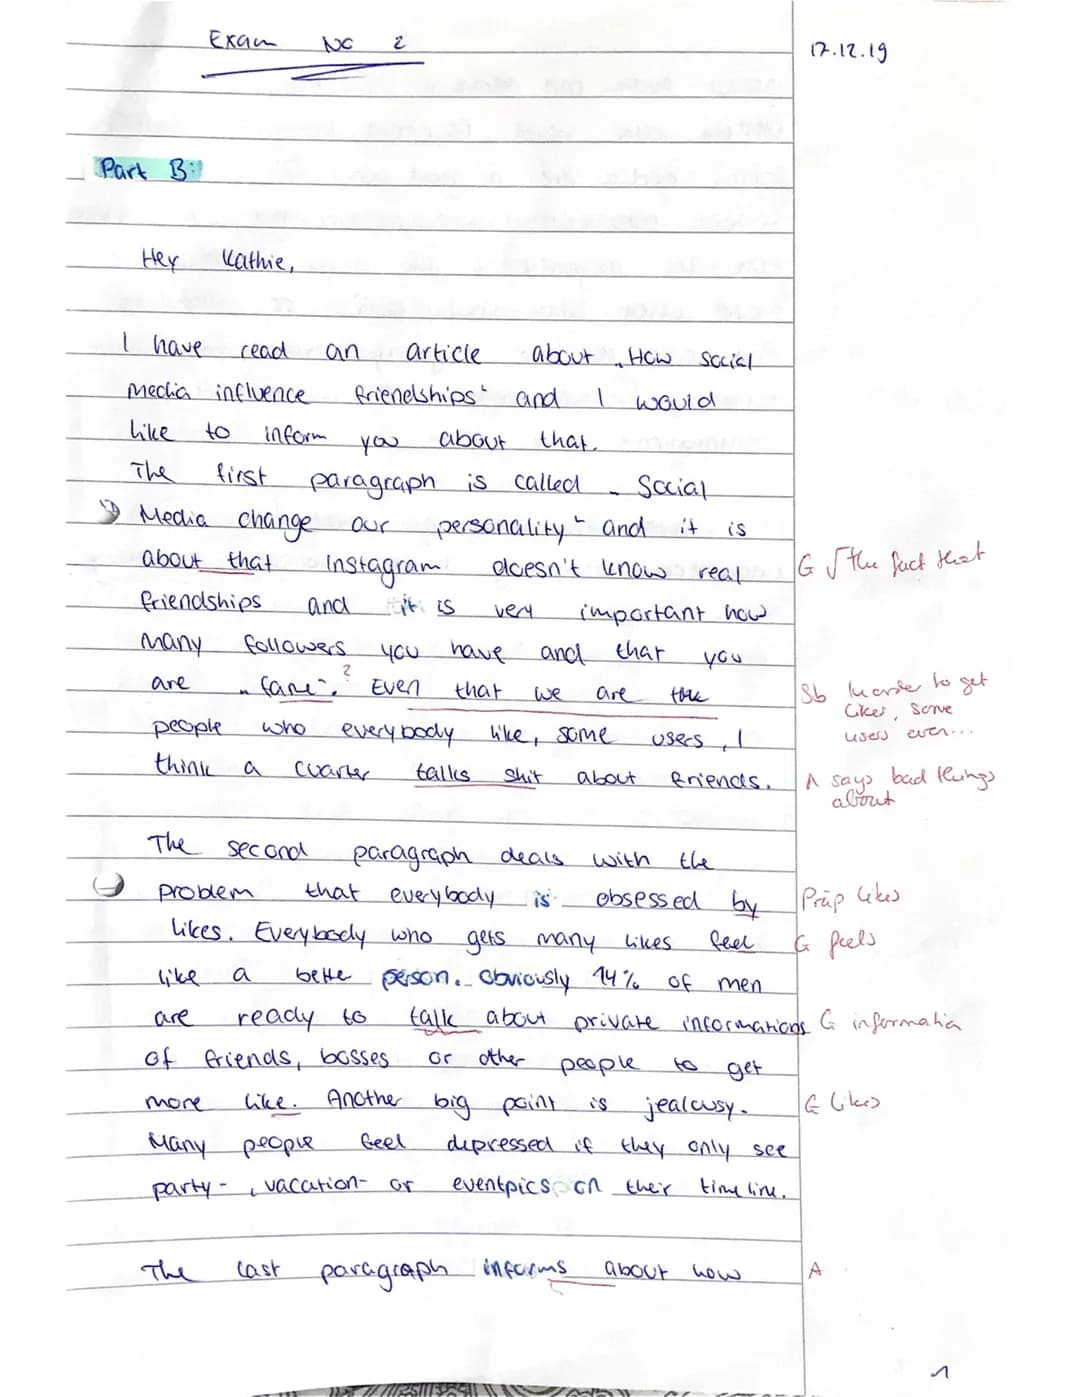 Exam No 2
17.12.19
Part B:
Hey Kathie,
I have read an article about „How Social
Media influence friendships“ and I would
like to inform you about that.
The first paragraph is called „Social
Media change our personality“ and it is
about that Instagram doesn't know real
G √ the fact that
friendships and it is very important how
many followers you have and that you
are „fame“. ? Even that we are the
Sb In order to get
likes, some
users even...
people who everybody like, some users, I
think a cuarter talks shit about friends.
A says bad things
about
The second paragraph deals with the
problem that everybody is obsessed by
Präp likes
likes. Everybody who gets many likes feel
G feels
like a bette person. Obviously 14% of men
are ready to talk about private informations
G information
of friends, bosses or other people to get
more like. Another big point is jealousy.
G likes
Many people feel depressed if they only see
party-, vacation- or eventpics on their timeline.
The last paragraph informs about how
A
1